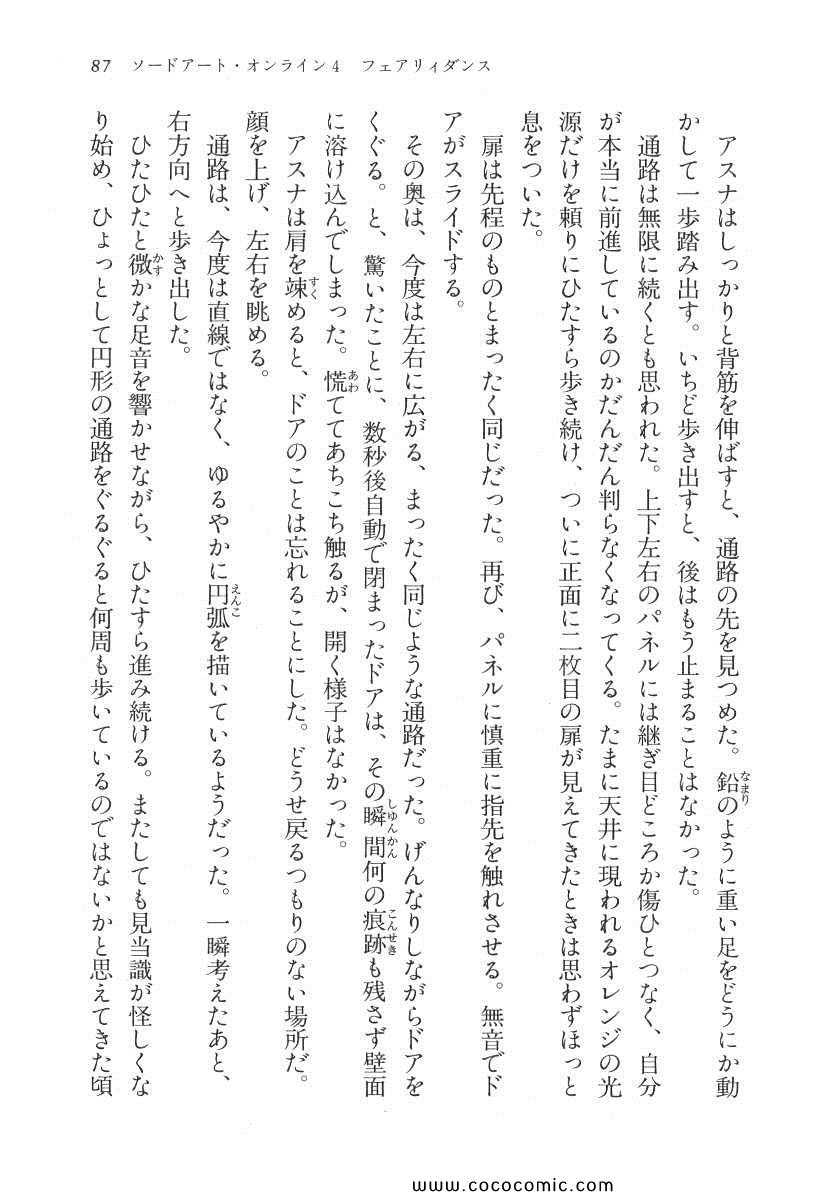 87 ソードアート・オンライン4 フェアリィダンス
アスナはしっかりと背筋を伸ばすと、通路の先を見つめた。鉛のように重い足をどうにか動
かして一歩踏み出す。いちど歩き出すと、後はもう止まることはなかった。
通路は無限に続くとも思われた。上下左右のパネルには継ぎ目どころか傷ひとつなく、自分
が本当に前進しているのかだんだん判らなくなってくる。たまに天井に現われるオレンジの光
源だけを頼りにひたすら歩き続け、ついに正面に二枚目の扉が見えてきたときは思わずほっと
息をついた。
扉は先程のものとまったく同じだった。再び、パネルに慎重に指先を触れさせる。無音でド
アがスライドする。
その奥は、今度は左右に広がる、まったく同じような通路だった。げんなりしながらドアを
くぐる。と、驚いたことに、数秒後自動で閉まったドアは、その瞬間何の痕跡も残さず壁面
に溶け込んでしまった。慌ててあちこち触るが、開く様子はなかった。
アスナは肩を竦めると、ドアのことは忘れることにした。どうせ戻るつもりのない場所だ。
顔を上げ、左右を眺める。
通路は、今度は直線ではなく、ゆるやかに円弧を描いているようだった。一瞬考えたあと、
右方向へと歩き出した。
ひたひたと微かな足音を響かせながら、ひたすら進み続ける。またしても見当識が怪しくな
り始め、ひょっとして円形の通路をぐるぐると何周も歩いているのではないかと思えてきた頃
www.cococomic.com